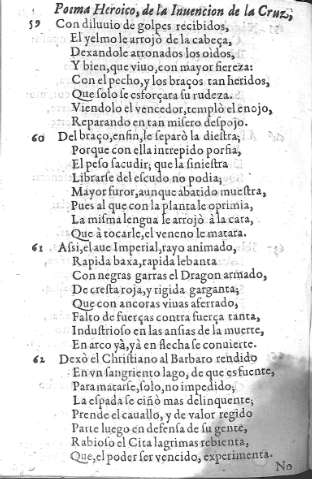 Poema Heroico, de la Inuencion de la Cruz,
59 Con diluuio de golpes recibidos,
El yelmo le arrojò de la cabeça,
Dexandole atronados los oidos,
Y bien, que viuo, con mayor fiereza:
Con el pecho, y los braços tan heridos,
Que solo se esforçara su rudeza.
Viendolo el vencedor, templò el enojo,
Reparando en tan misero despojo.
60 Del braço, enfin, le separò la diestra;
Porque con ella intrepido porfia,
El peso sacudir; que la siniestra
Librarse del escudo no podia;
Mayor furor, aunque abatido muestra,
Pues al que con la planta le oprimia,
La misma lengua le arrojò à la cara,
Que à tocarle, el veneno le matara.
61 Assi, el aue Imperial, rayo animado,
Rapida baxa, rapida lebanta
Con negras garras el Dragon armado,
De cresta roja, y rigida garganta;
Que con ancoras viuas aferrado,
Falto de fuerças contra fuerça tanta,
Industrioso en las ansias de la muerte,
En arco yà, yà en flecha se conuierte.
62 Dexò el Christiano al Barbaro rendido
En vn sangriento lago, de que es fuente,
Para matarse, solo, no impedido;
La espada se ciñò mas delinquente;
Prende el cauallo, y de valor regido
Parte luego en defensa de su gente,
Rabioso el Cita lagrimas rebienta,
Que, el poder ser vencido, experimenta.
No